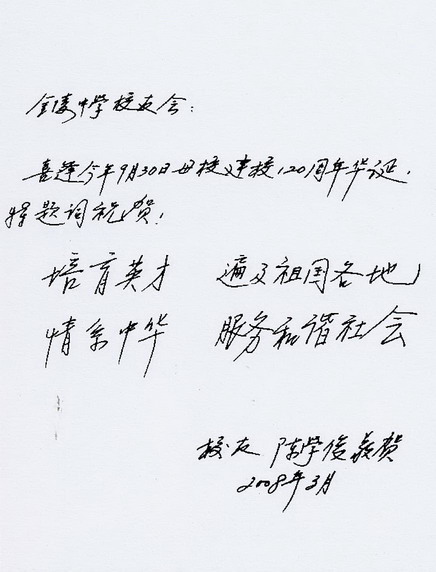 金陵中学校友会：
喜逢今年9月30日母校建校120周年华诞，
特题词祝贺！
培育英才 遍及祖国各地
情系中华 服务和谐社会
校友 陈学俊 贺
2008年3月